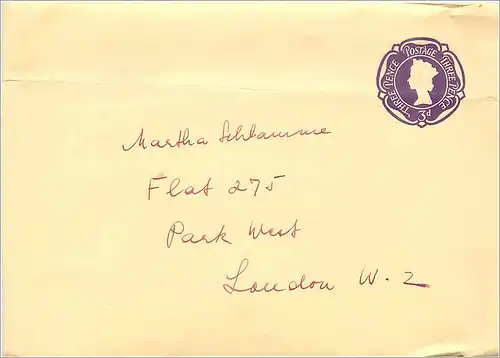 POSTAGE
THREE PENCE THREE PENCE
3d
Martha Schlamme
Flat 275
Park West
London W. 2